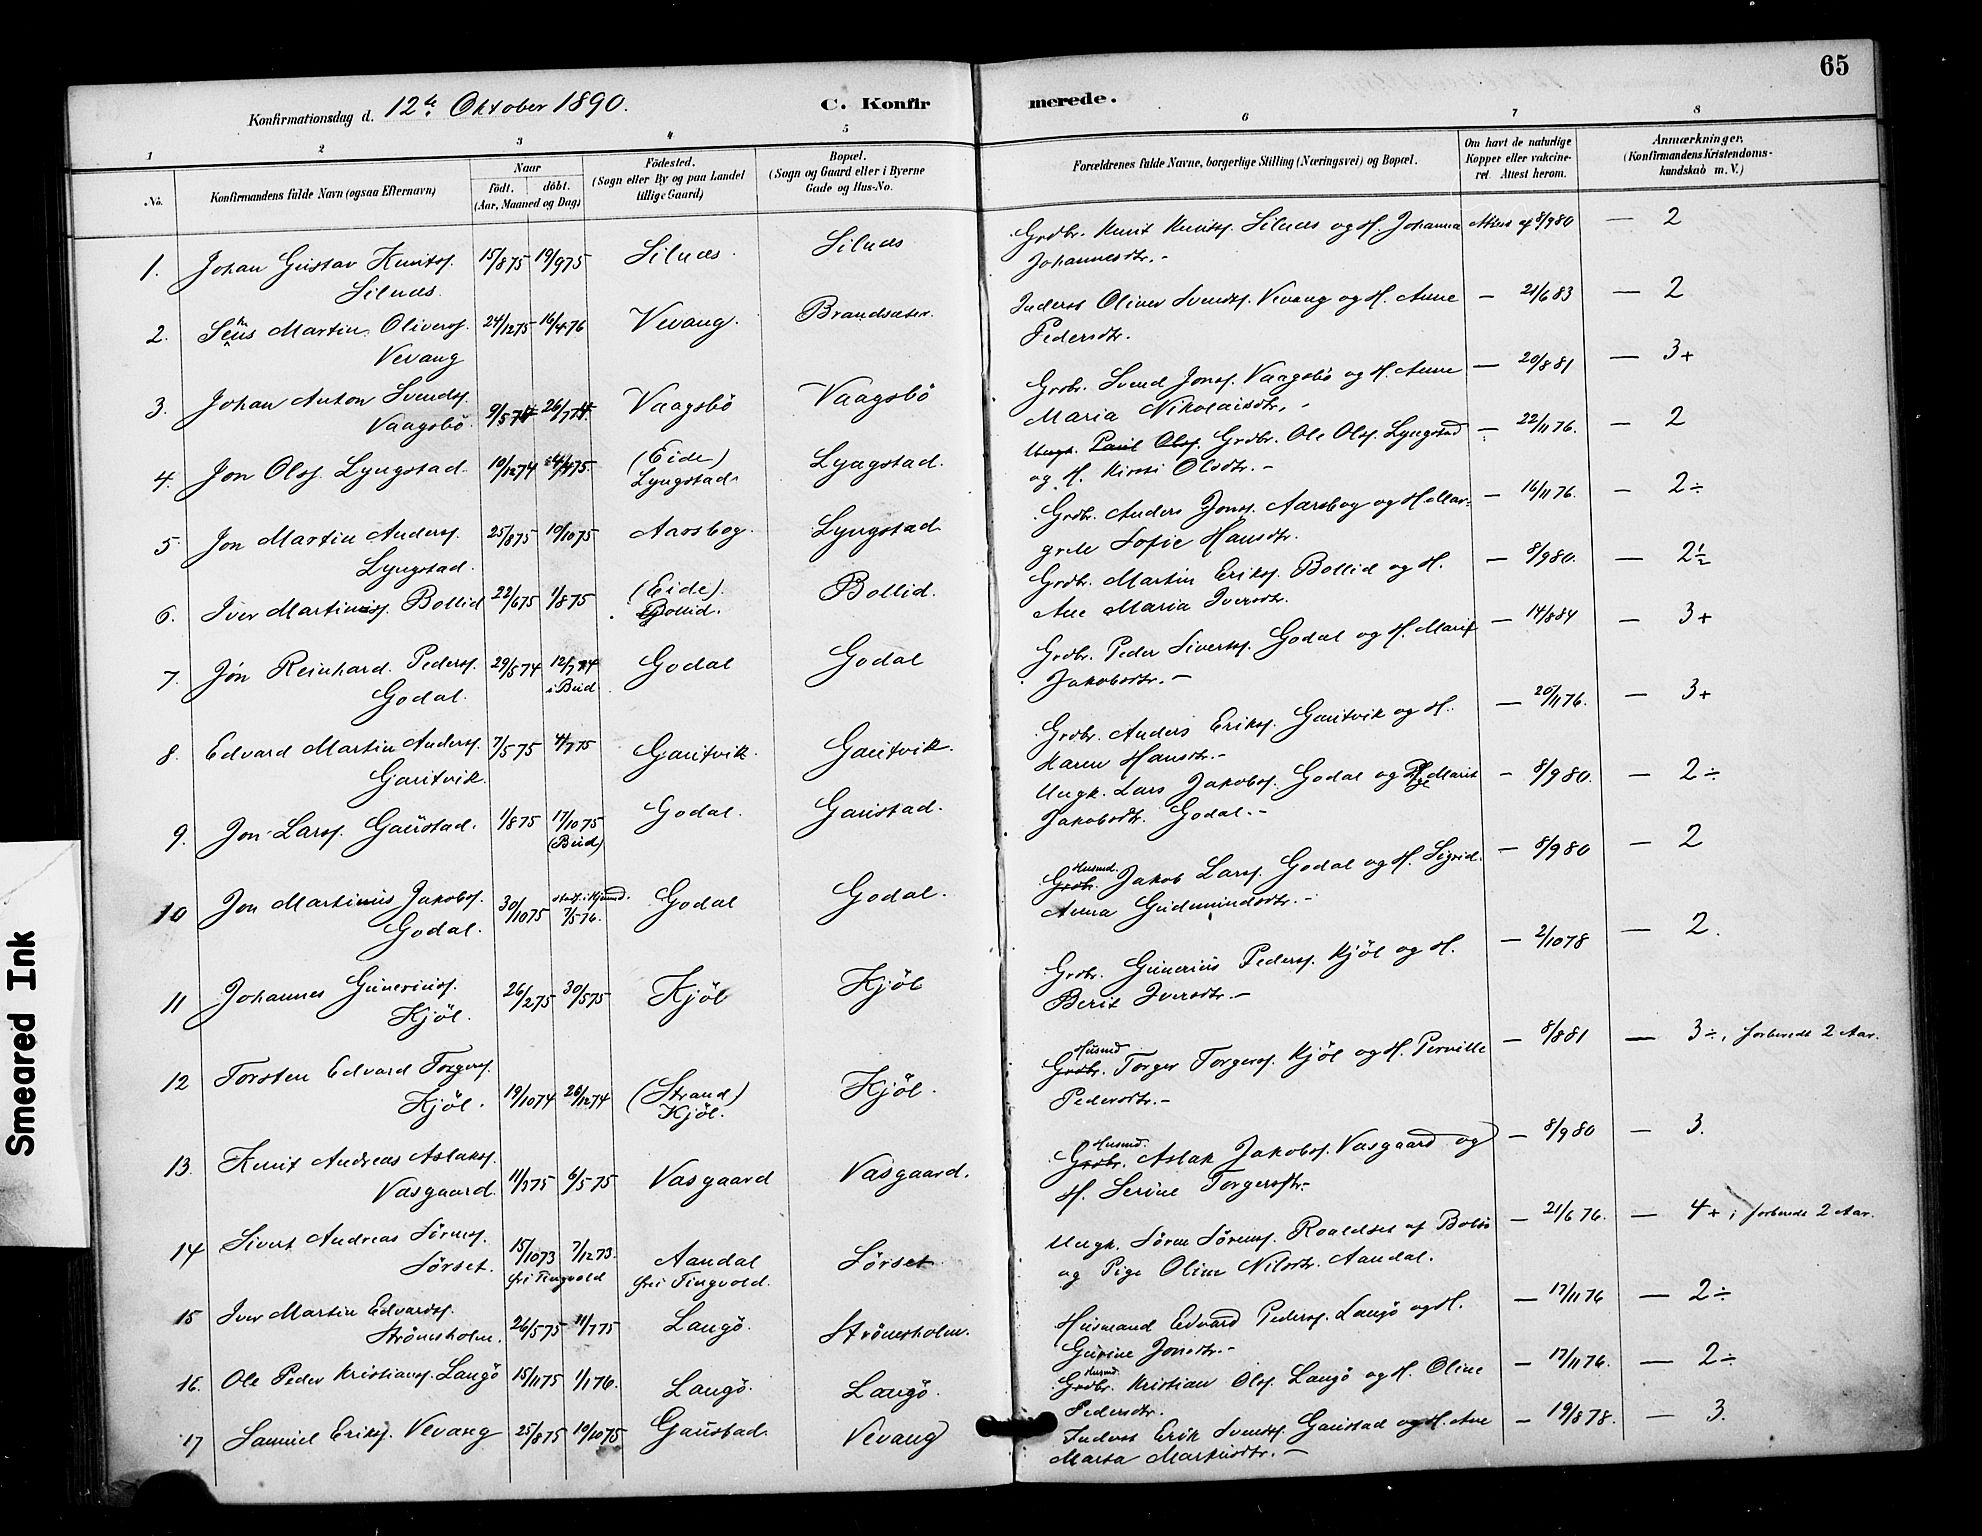 65
Konfirmationsdag d. 12te Oktober 1890.
C. Konfirmerede.
1 2 3 4 5 6 7 8
No. Konfirmandens fulde Navn (ogsaa Efternavn)
Naar
født. døbt.
(Aar, Maaned og Dag)
Fødested.
(Sogn eller By og paa Landet
tillige Gaard)
Bopæl.
(Sogn og Gaard eller i Byerne
Gade og Hus-No.
Forældrenes fulde Navne, borgerlige Stilling (Næringsvei) og Bopæl.
Om havt de naturlige
Kopper eller vakcine-
ret. Attest herom.
Anmærkninger,
(Konfirmandens Kristendoms-
kundskab m. V.)
1. Johan Gustav Knuts. 15/8 75 19/9 75 Silnæs. Silnæs Grdbr. Knut Knuts. Silnæs og H. Johanna Attest af 8/9 80 — 2
Silnæs. Johannesdtr. —
2. Martin Olivers. 24/12 75 16/4 76 Vevang. Brandsæter. Inderst Oliver Svends. Vevang og H. Anne — 21/6 83 — 2
Vevang Pedersdtr.
3. Johan Anton Svends. 9/5 74 26/7 74 Vaagsbö Vaagsbö Grdbr. Svend Jons. Vaagsbö og H. Anne — 20/8 81 — 3+
Vaagsbö. Maria Nikolaisdtr. -
4. Jon Ols. Lyngstad. 10/12 74 4/4 75 (Eide) Lyngstad. Ungk. Paul Ols. Grdbr. Ole Ols. Lyngstad — 22/11 76. — 2
Lyngstad. og H. Kirsti Olsdtr. —
5. Jon Martin Anders. 25/8 75 10/10 75 Aarsbog. Lyngstad Grdbr. Anders Jons. Aarsbog og H. Mar- — 16/11 76. — 2÷
Lyngstad. grete Sofie Hansdtr.
6. Iver Martinus. Bollid 22/6 75 1/8 75 (Eide). Bollid. Grdbr. Martin Eriks. Bollid og H. — 8/9 80. — 2½
Bollid. Ane Maria Iversdtr.
7. Jon Reinhard Peders. 29/5 74 12/7 74 Godal Godal Grdbr. Peder Siverts. Godal og H. Marit — 14/8 84 — 3+
Godal. i Bud Jakobsdtr. —
8. Edvard Martin Anders. 7/5 75 4/7 75 Gautvik. Gautvik. Grdbr. Anders Eriks. Gautvik og H. — 20/11 76. — 3+
Gautvik. Karen Hansdtr. —
9. Jon Larss. Gaustad. 1/8 75 17/10 75 Godal. Gaustad. Ungk. Lars Jakobs. Godal og Pige Marit — 8/9 80. — 2÷
(Bud) Jakobsdtr. Godal. —
10 Jon Martinus Jakobs. 30/10 75 7/5 76. Godal Godal. Grdbr. Husmd. Jakob Larss. Godal og H. Sigrid — 8/9 80 — 2
Godal. Anna Gudmundsdtr. —
11 Johannes Gunerius. 26/2 75 30/5 75 Kjöl Kjöl Grdbr. Gunerius Peders. Kjöl og H. — 2/10 78 — 2.
Kjöl. Berit Iversdtr. —
12 Torsten Edvard Torgers. 19/10 74 26/12 74 (Strand) Kjöl. Grdbr. Husmd Torger Torgers. Kjöl og H. Pernille — 8/8 81 — 3÷, forberedt 2 Aar.
Kjöl. Kjöl. Pedersdtr. —
13. Knut Andreas Aslaks. 11/3 75 6/5 75 Vasgaard Vasgaard. Grdbr. Husmd. Aslak Jakobs. Vasgaard og — 8/9 80 — 3.
Vasgaard. H. Serine Torgersdtr.
14 Sivert Andreas Sörens. 15/10 73 7/12 73. Aandal Sörset Ungk. Sören Sörens. Roaldset af Bolsö — 21/6 76. — 4+; forberedt 2 Aar.
Sörset. fri Tingvold fri Tingvold. og Pige Oline Nilsdtr. Aandal.
15 Iver Martin Edvards. 26/5 75 11/7 75 Langö. Strömsholm. Husmand Edvard Peders. Langö og H. — 17/11 76 — 2÷
Strömsholm. Gurine Jonsdtr. —
16. Ole Peder Kristians. Langö 15/11 75 1/1 76. Langö. Langö. Grdbr. Husmd. Kristian Ols. Langö og H. Oline — 17/11 76. — 2÷
Pedersdtr.
17 Samuel Eriks. Vevang 25/8 75 10/10 75 Gaustad. Vevang Inderst Erik Svends. Gaustad og H. Ane — 19/8 78. — 3.
Marta Markusdtr. —
Smeared Ink